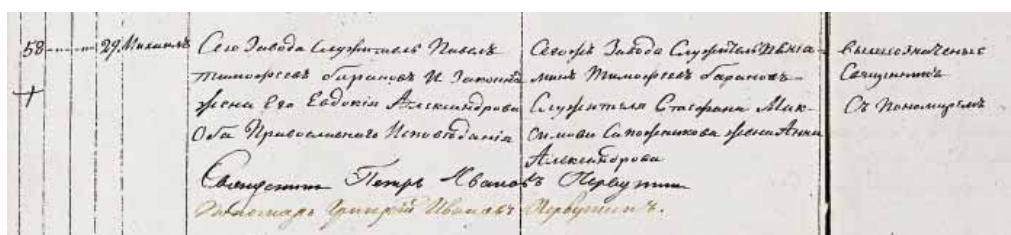 58 29. Михаилъ
Сего Завода Служитель Павелъ
Тимофеевъ Барановъ И Законная
жена Его Евдокия Александрова
Оба Православнаго Исповѣданія
Сегожъ Завода Служитель Веньа-
минъ Тимофеевъ Барановъ
Служителя Стефана Мак-
симова Сапожникова жена Анна
Александрова
вышеозначенные
Священникъ
Съ Пономаремъ
Священникъ Петръ Ивановъ Первушинъ
Пономарь Григорій Ивановъ Первушинъ.